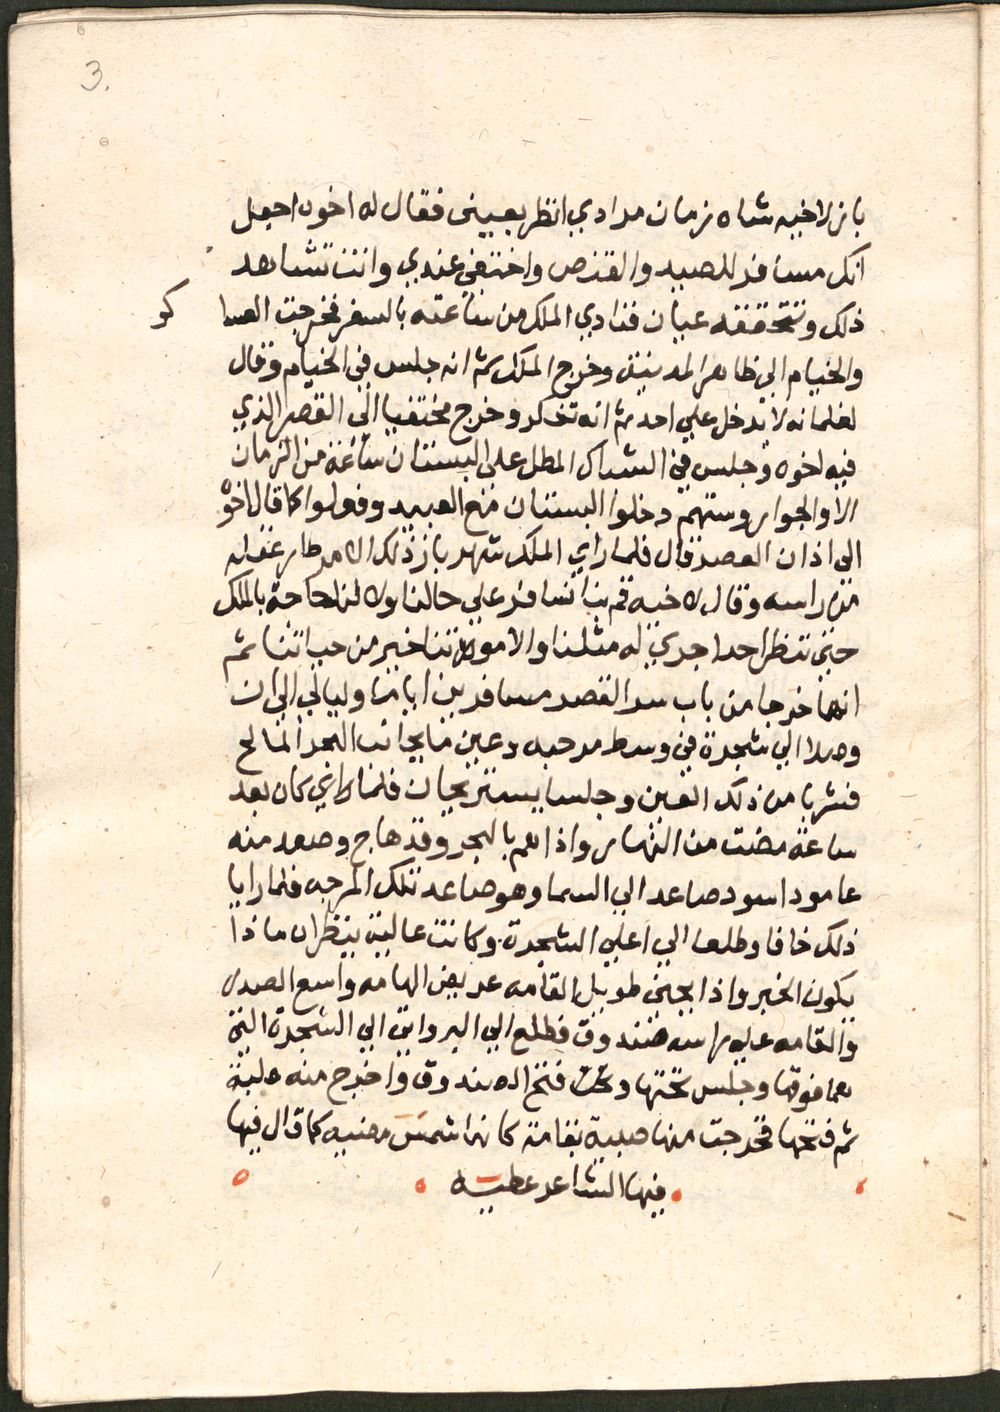 3.
باز لاخيه شاه زمان مرادي انظر بعيني فقال له اخوه اجعل
انك مسافر للصيد والقنص واختفي عندي وانت تشاهد
ذلك وتتحققه عيان فنادي الملك من ساعته بالسفر فخرجت العسا
كر
والخيام الي ظاهر المدينه وخرج الملك ثم انه جلس في الخيام وقال
لغلمانه لا يدخل علي احد ثم انه تنكر وخرج مختفيا الى القصر الذي
فيه اخوه وجلس في الشباك المطل على البستان ساعة من الزمان
الا والجوار وستهم دخلوا البستان مع العبيد وفعلوا كما قال اخوه
الى اذان العصر قال فلما راي الملك شهرباز ذلك الامر طار عقله
من راسه وقال لاخيه قم بنا نسافر علي حالنا ولا لنا حاجة بالملك
حتى ننظر احدا جري له مثلنا والا موتنا خير من حياتنا ثم
انهما خرجا من باب سر القصر مسافرين اياما وليالي الى ان
وصلا الي شجرة في وسط مرجه وعين ما بجانب البحر المالح
فشربا من ذلك العين وجلسا يستريحان فلما كان بعد
ساعة مضت من النهار واذا هم بالبحر وقد هاج وصعد منه
عامود اسود صاعد الي السما وهو صاعد تلك المرجه فلما رايا
ذلك خافا وطلعا الي اعلي الشجرة وكانت عالية ينظران ماذا
يكون الخبر واذا بجني طويل القامه عريض الهامه واسع الصدر
والقامه علي راسه صندوق فطلع الي البر واتي الي الشجرة التي
هما فوقها وجلس تحتها وفتح الصندوق واخرج منه علبة
ثم فتحها فخرجت منها صبية بقامة كانها شمس مضيه كما قال فيها
فيها الشاعر عطيه